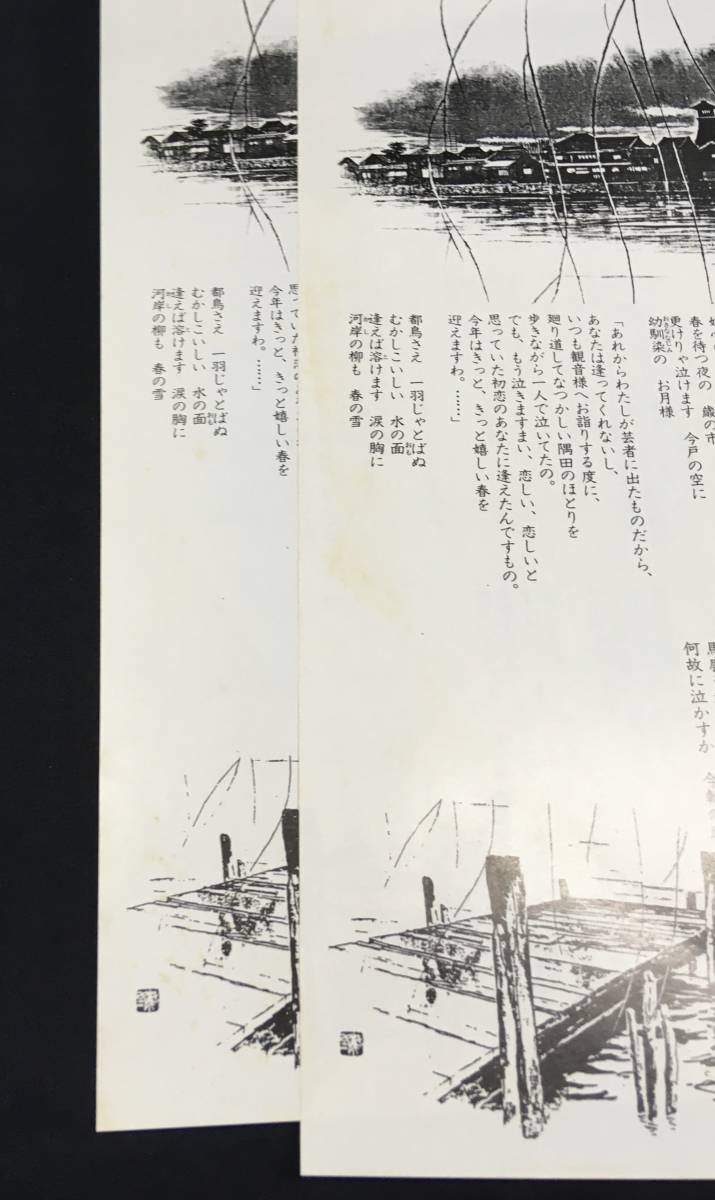 春を待つ夜の　歳の市
更けりゃ泣けます　今戸の空に
幼馴染の　お月様
「あれからわたしが芸者に出たものだから、
あなたは逢ってくれないし、
いつも観音様へお詣りする度に、
廻り道してなつかしい隅田のほとりを
歩きながら一人で泣いてたの。
でも、もう泣きますまい、恋しい、恋しいと
思っていた初恋のあなたに逢えたんですもの。
今年はきっと、きっと嬉しい春を
迎えますわ。……」
都鳥さえ　一羽じゃとばぬ
むかしこいしい　水の面
逢えば溶けます　涙の胸に
河岸の柳も　春の雪
何故に泣かすか
今年はきっと、きっと嬉しい春を
迎えますわ。……」
都鳥さえ　一羽じゃとばぬ
むかしこいしい　水の面
逢えば溶けます　涙の胸に
河岸の柳も　春の雪